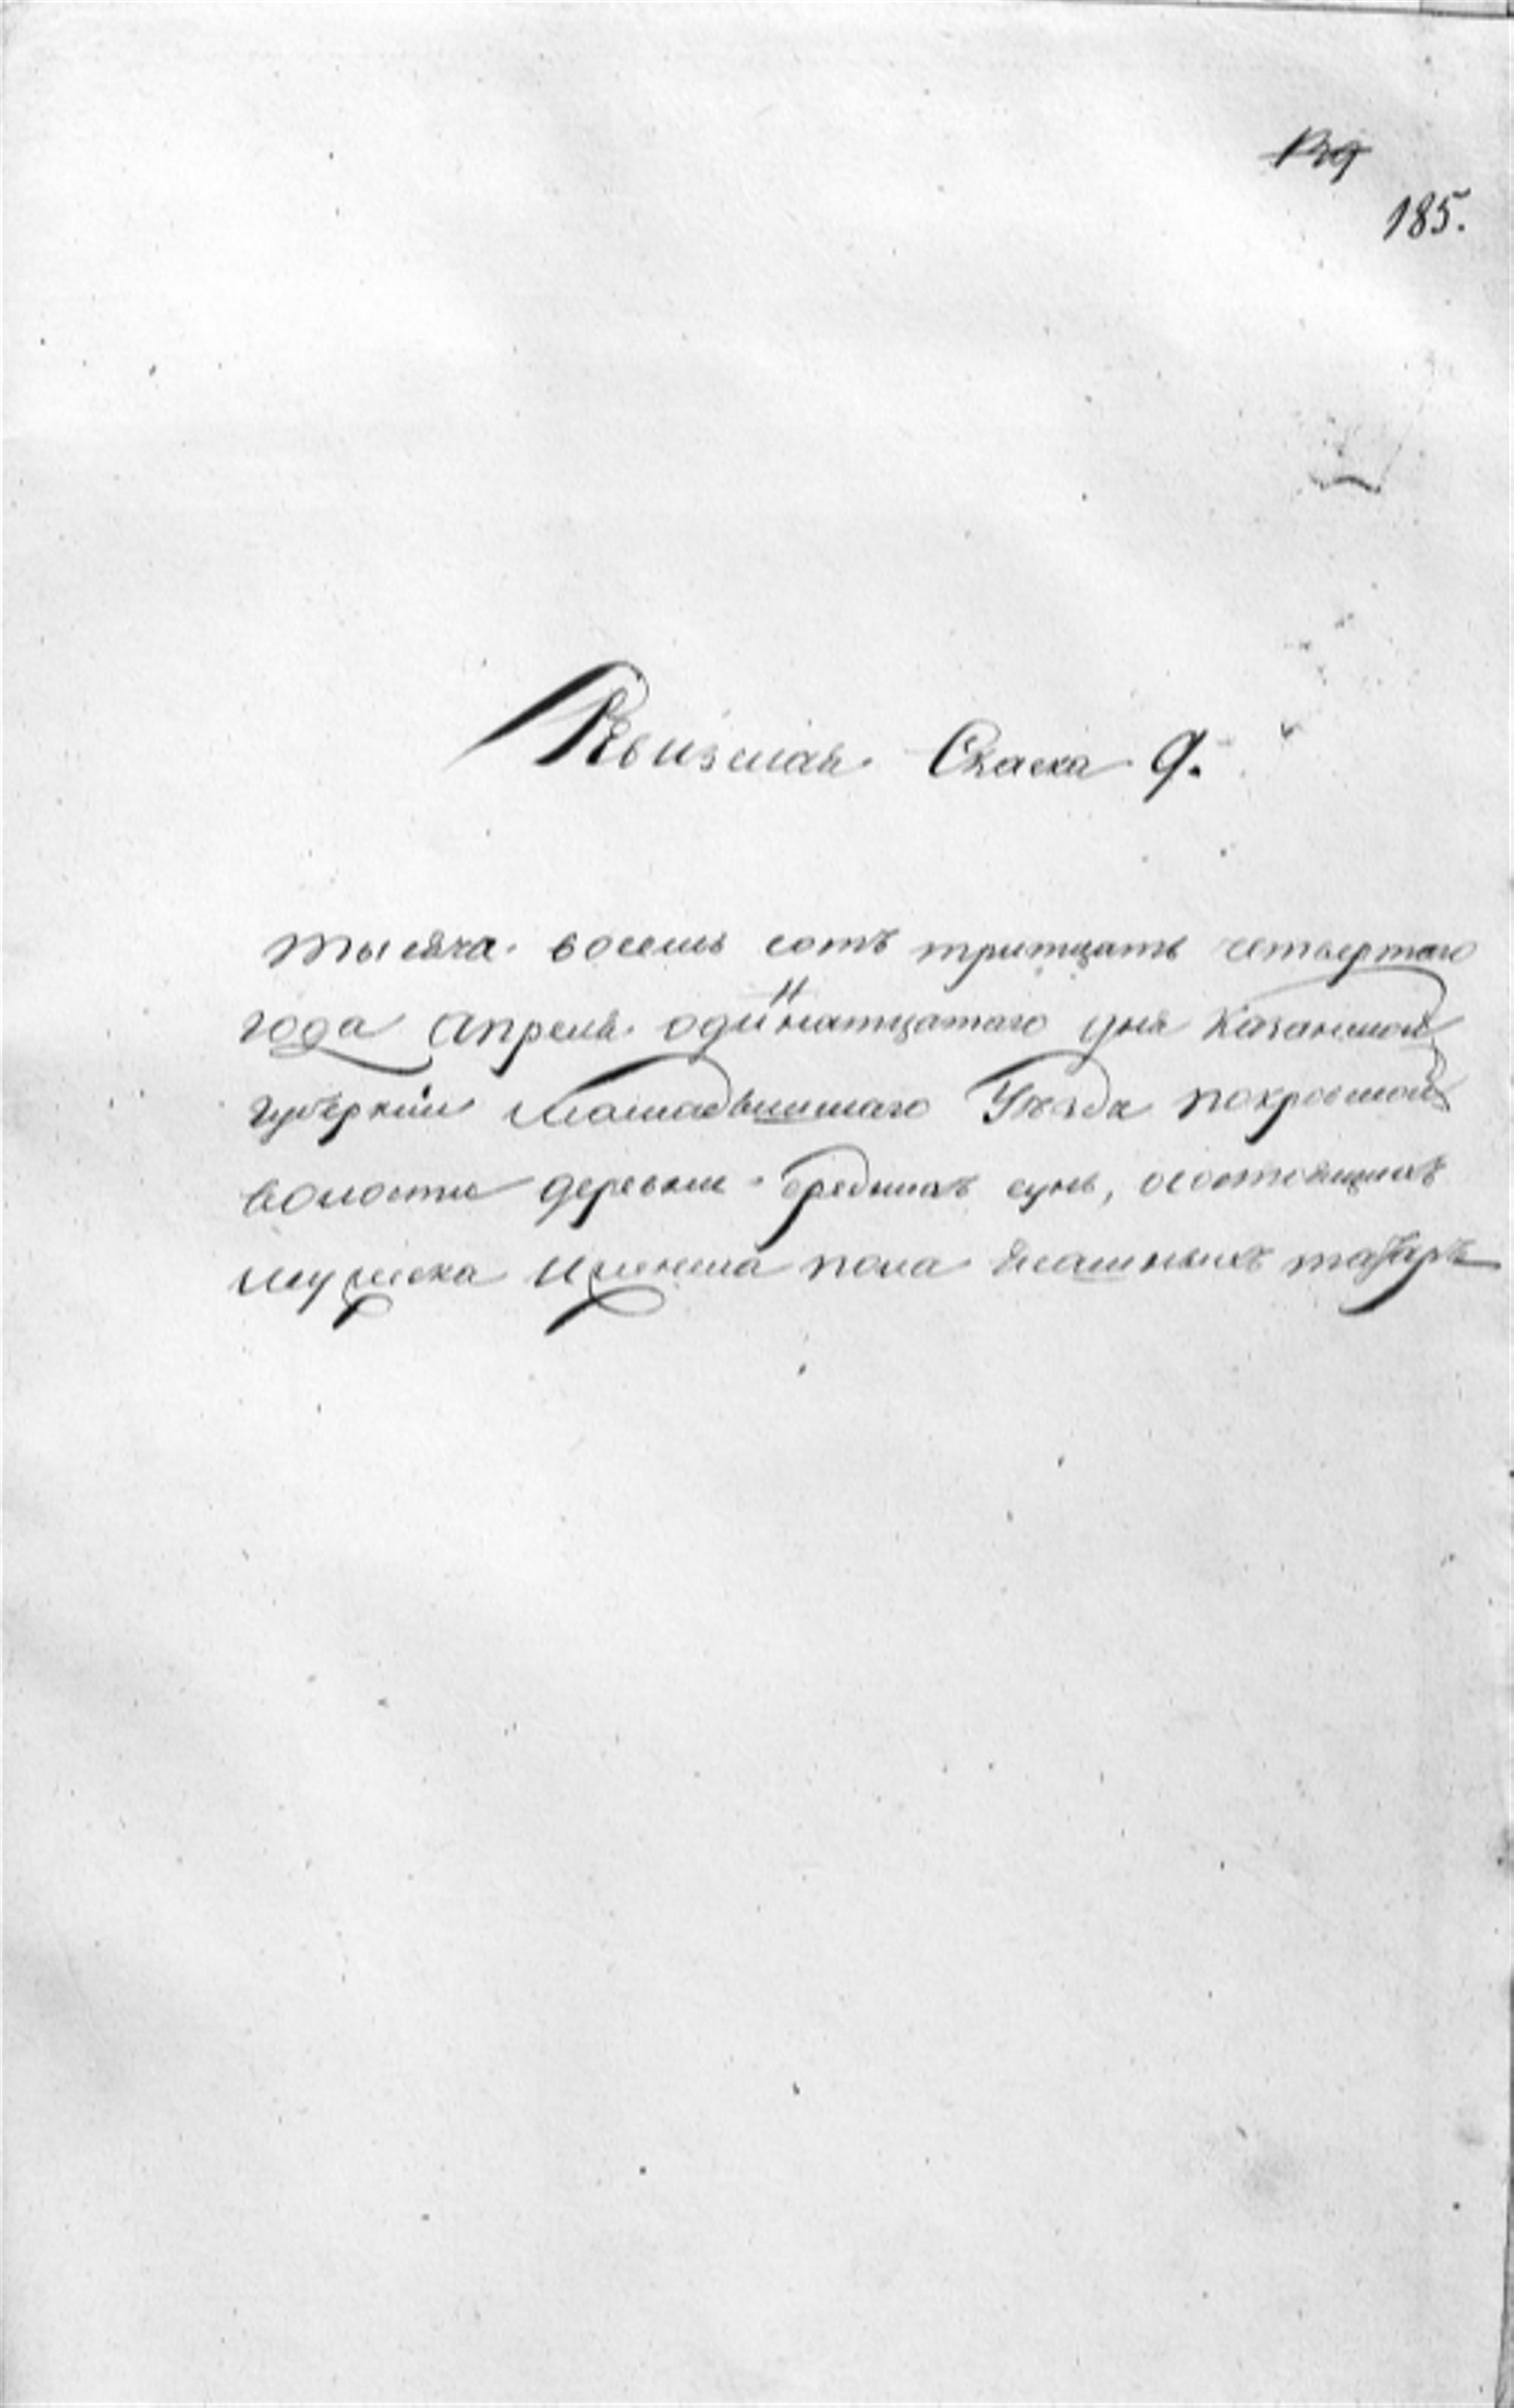 185.
Ревизская Скаска 9.
тысяча восемь сотъ тритцать четвертаго
года Апреля одиннатцатаго дня Казанской
губернии Мамадышскаго Уезда покровской
волости деревни среднихъ сунь, осостоящихъ
мужеска и женска пола ясашныхъ татаръ